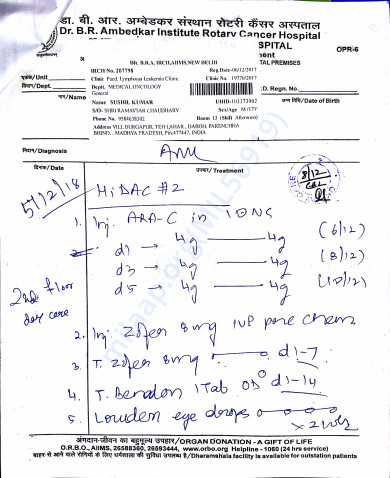 डा. बी. आर. अम्बेडकर संस्थान रोटरी कैंसर अस्पताल
Dr. B.R. Ambedkar Institute Rotary Cancer Hospital
SPITAL
OPR-6
Dr. B.R.A. IRCH,AIIMS,NEW DELHI
TAL PREMISES
IRCH No. 207798 Reg.Date-06/12/2017
एकक/Unit
Clinic Paed. Lymphoma Leukemia Clinic Clinic No. 19770/2017
विभाग/Dept.
Dept. MEDICAL ONCOLOGY
O.D. Regn. No.
General
नाम/Name
Name SUSHIL KUMAR UHID-103373902
जन्म तिथि/Date of Birth
S/O- SHRI RAMAVTAR CHAUDHARY Sex/Age M/17Y
Phone No. 9584638302 Room 12 (Shif) Afternoon)
Address VILL DURGAPUR, TEH LAHAR, DABOH, PARENCHHA
BHIND, MADHYA PRADESH, Pin:477447, INDIA
निदान/Diagnosis
AML
दिनांक/Date
उपचार/Treatment
5/12/18
8/12
HiDAC #2
1. Inj. ARA-C in 10NS
d1 → 4g 4g (6/12)
d3 → 4g 4g (8/12)
d5 → 4g 4g (10/12)
2nd floor
day care
2. Inj Zofer 8mg IVP pre chem
3. T. Zofer 8mg d1-7
4. T. Bendon 1Tab OD d1-14
5. eye drops
x 2 wks
अंगदान-जीवन का बहुमूल्य उपहार/ORGAN DONATION - A GIFT OF LIFE
O.R.B.O., AIIMS, 26588360, 26593444, www.orbo.org Helpline - 1060 (24 hrs service)
बाहर से आने वाले रोगियों के लिए धर्मशाला की सुविधा उपलब्ध है/Dharamshala facility is available for outstation patients